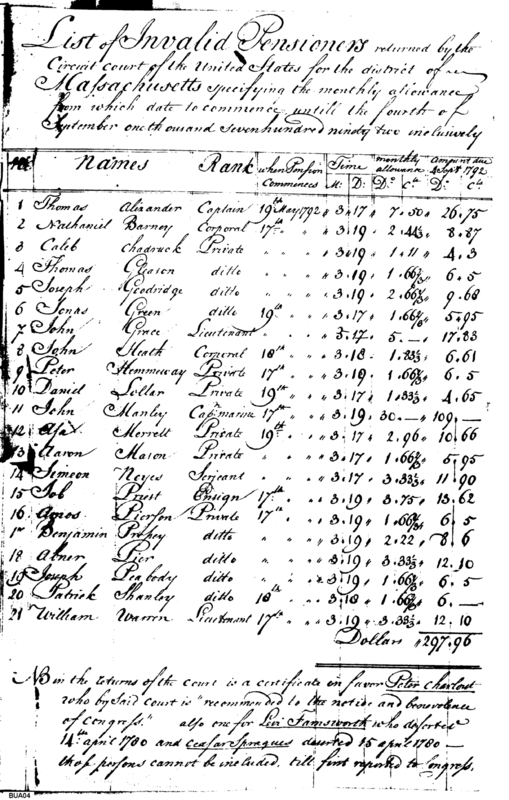 List of Invalid Pensioners returned by the
Circuit court of the United States for the district of
Massachusetts specifying the monthly allowance
from which date to commence, untill the fourth of
September one thousand seven hundred ninety two inclusively
Names Rank when Pension Commences Time M: D: monthly allowance Do. Cts. amount due 4 Sept. 1792 Do. Cts.
1 Thomas Alexander Captain 19th May 1792 3.17 7.50 26.75
2 Nathaniel Barney Corporal 17th " " 3.19 2.44 8.87
3 Caleb Chadruck Private " " " 3.19 1.11 4.3
4 Thomas Gleason ditto " " " 3.19 1.66⅔ 6.5
5 Joseph Goodridge ditto " " " 3.19 2.66⅔ 9.68
6 Jonas Green ditto 19th " " 3.17 1.66⅔ 5.95
7 John Grace Lieutenant " " " 3.17 5.— 17.83
8 John Heath Corporal 18th " " 3.18 1.83⅓ 6.61
9 Peter Hemmeway Private 17th " " 3.19 1.66⅔ 6.5
10 Daniel Lollar Private 19th " " 3.17 1.33⅓ 4.65
11 John Manley Capn. marine 17th " " 3.19 30.— 109.—
12 Asa Merrett Private 19th " " 3.17 2.96 10.66
13 Aaron Mason Private " " " 3.17 1.66⅔ 5.95
14 Simeon Noyes Serjeant " " " 3.17 3.33⅓ 11.90
15 Job Priest Ensign 17th " " 3.19 3.75 13.62
16 Amos Pierson Private 17th " " 3.19 1.66⅔ 6.5
Benjamin ditto " " " 3.19 2.22 8 6
18 Abner Pier ditto " " " 3.19 3.33⅓ 12.10
19 Joseph Peabody ditto " " " 3.19 1.66⅔ 6.5
20 Patrick Shanley ditto 18th " " 3.18 1.66⅔ 6.—
21 William Warren Lieutenant 17th " " 3.19 3.33⅓ 12.10
Dollars 297.96
NB in the returns of the court is a certificate in favor Peter Charlost
who by said court is "recommended to the notice and benevolence
of Congress." also one for Levi Farnsworth who deserted
14th april 1780 and Ceasar Spragues deserted 15 april 1780 —
thos persons cannot be included, till first reported to Congress.
BUA04